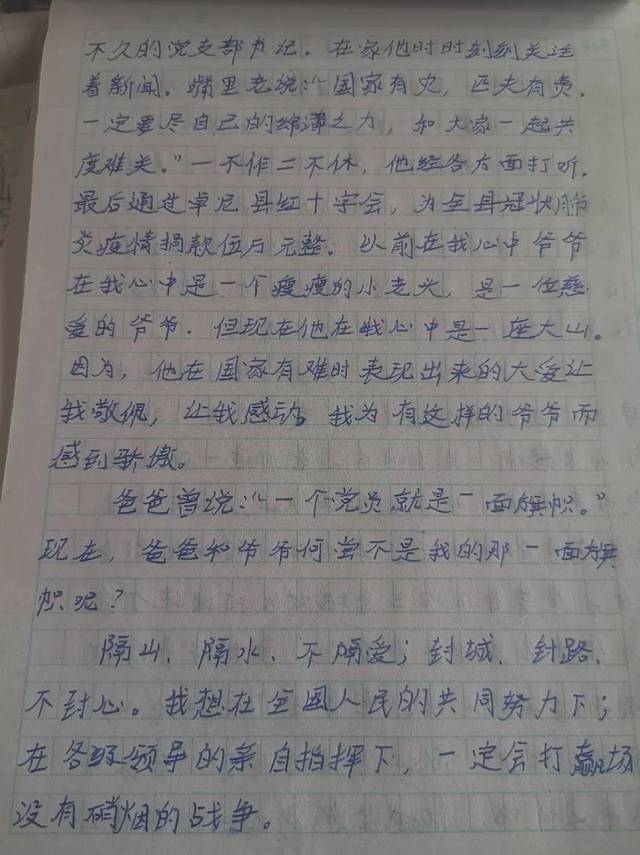 不久的党支部书记。在家他时时刻刻关注
着新闻。嘴里老说："国家有灾，匹夫有责，
一定要尽自己的绵薄之力，和大家一起共
度难关。"一不作二不休，他经各方面打听，
最后通过卓尼县红十字会，为全县冠状肺
炎疫情捐款伍万元整。以前在我心中爷爷
在我心中是一个瘦瘦的小老头，是一位慈
爱的爷爷。但现在他在我心中是一座大山。
因为，他在国家有难时表现出来的大爱让
我敬佩，让我感动。我为有这样的爷爷而
感到骄傲。
爸爸曾说："一个党员就是一面旗帜。"
现在，爸爸和爷爷何尝不是我的那一面旗
帜呢？
隔山，隔水，不隔爱；封城，封路，
不封心。我想在全国人民的共同努力下；
在各级领导的亲自指挥下，一定会打赢场
没有硝烟的战争。